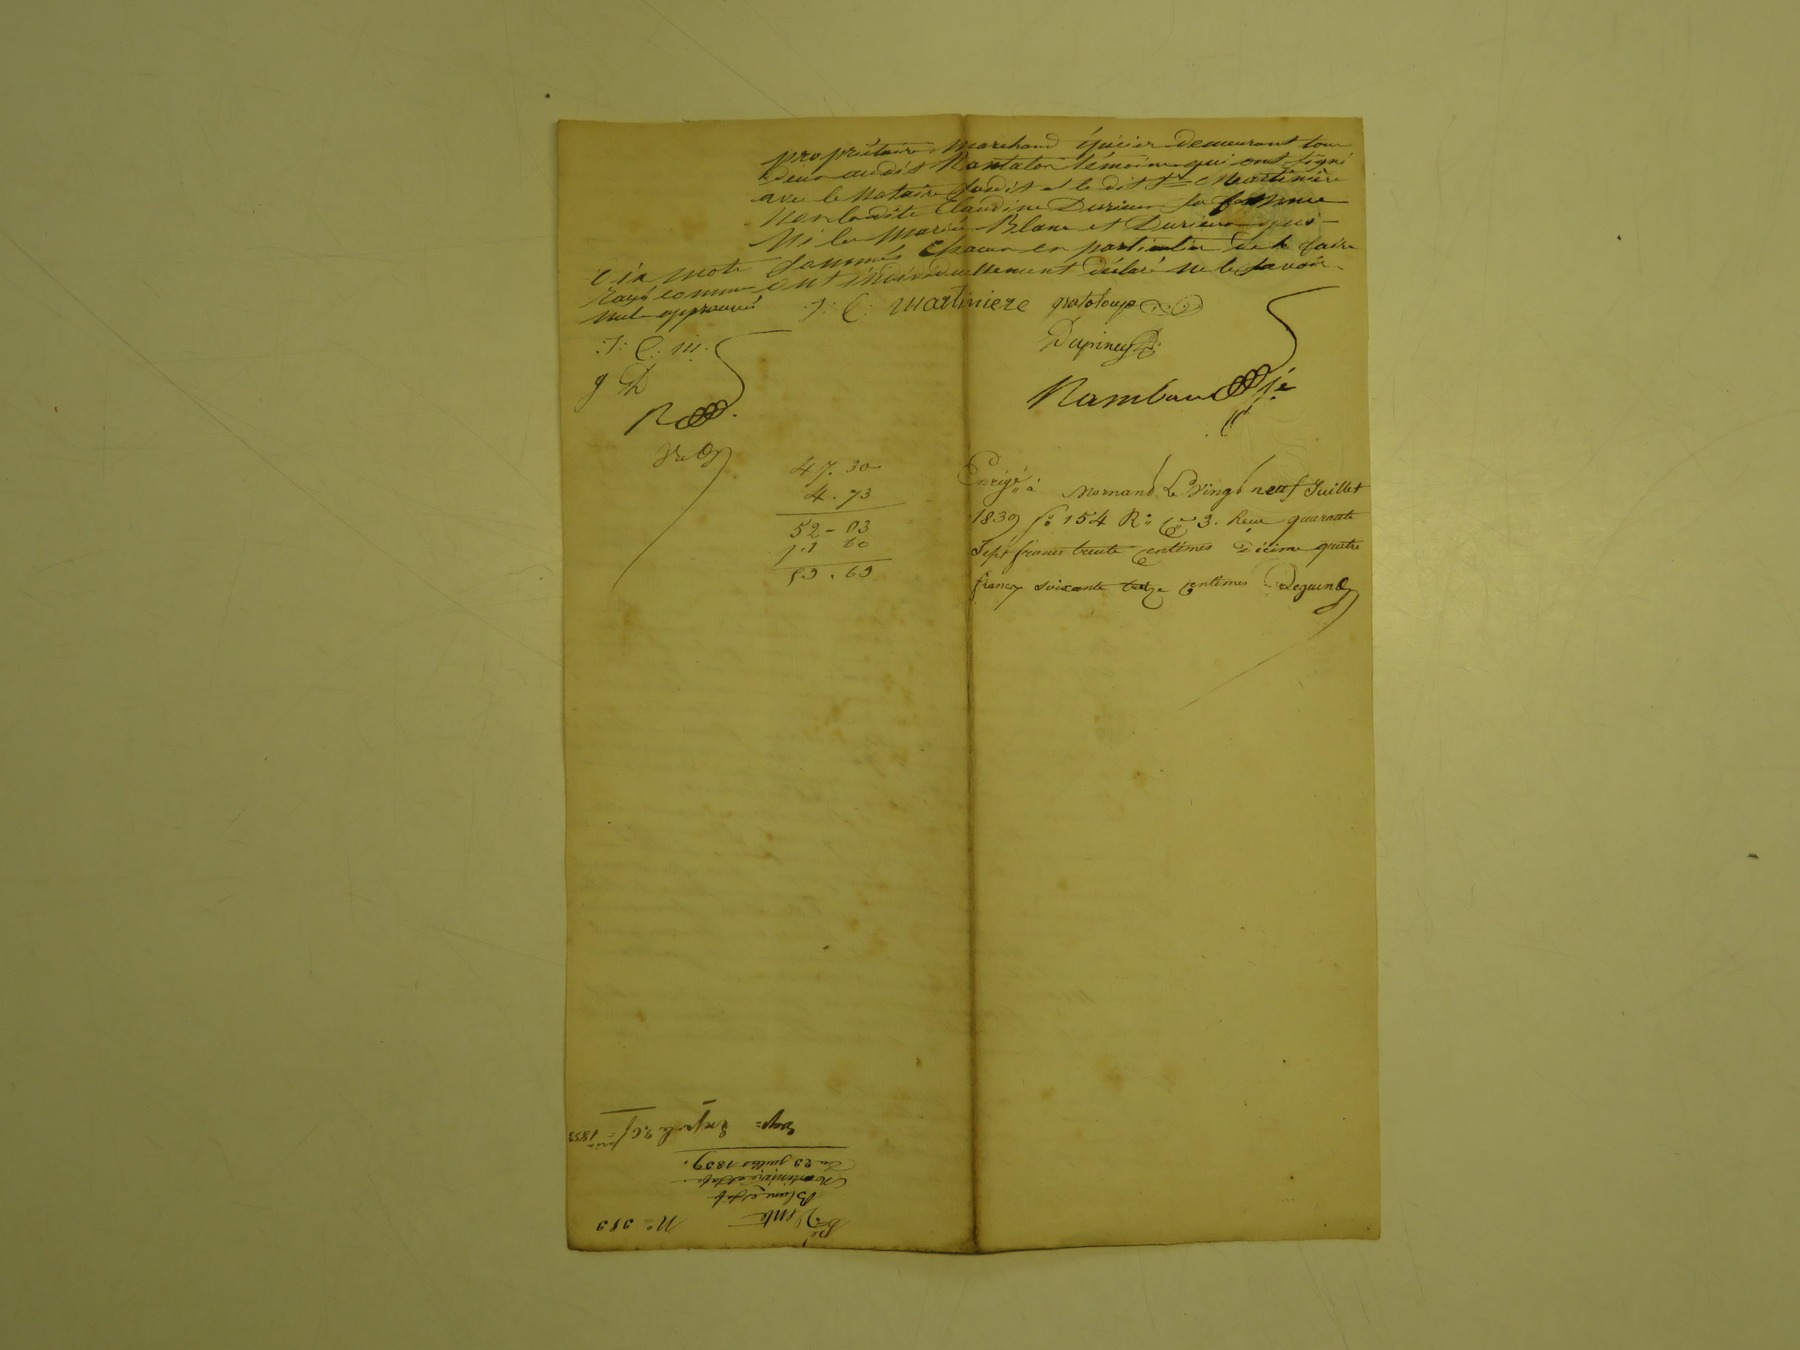 propriétaire & marchand épicier demeurant tous
deux audit Montaton témoins qui ont signé
avec le Notaire susdit et le dit Sr Martinière
Non ladite Claudine Durieux sa femme
Ni les Mariés Blanc et Durieux qui
sommés chacun en particulier de le faire
ont individuellement déclaré ne le savoir
mots
Rayé comme
nuls approuvés
J: C: martiniere gratoloup
J: C. m. Dapiney
g D
Rambaud
47. 30
4. 73
52 - 03
1.60
53. 63
Enrgé à Mornand Le Vingt neuf Juillet
1839 fo 154 Ro Ce 3. Reçu quarante
Sept francs trente centimes Décime quatre
francs soixante treize centimes Deguin
No 383
Vente
Blanc
Martinière
Du 23 juillet 1839.